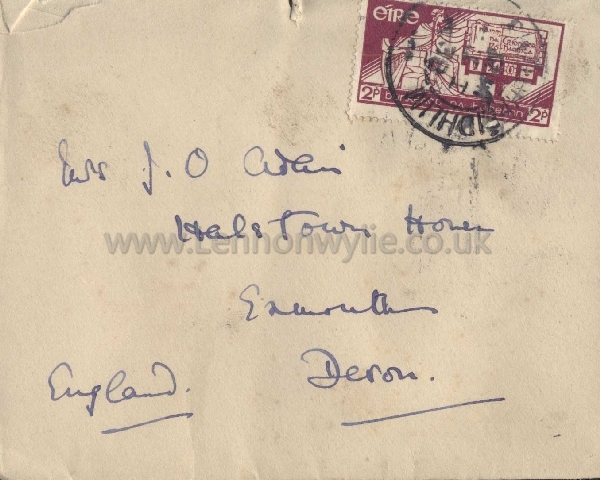 éire
2p 2p
Mrs J. O Atkin
Halstown House
www.Lennonwylie.co.uk
Exmouth
England. Devon.